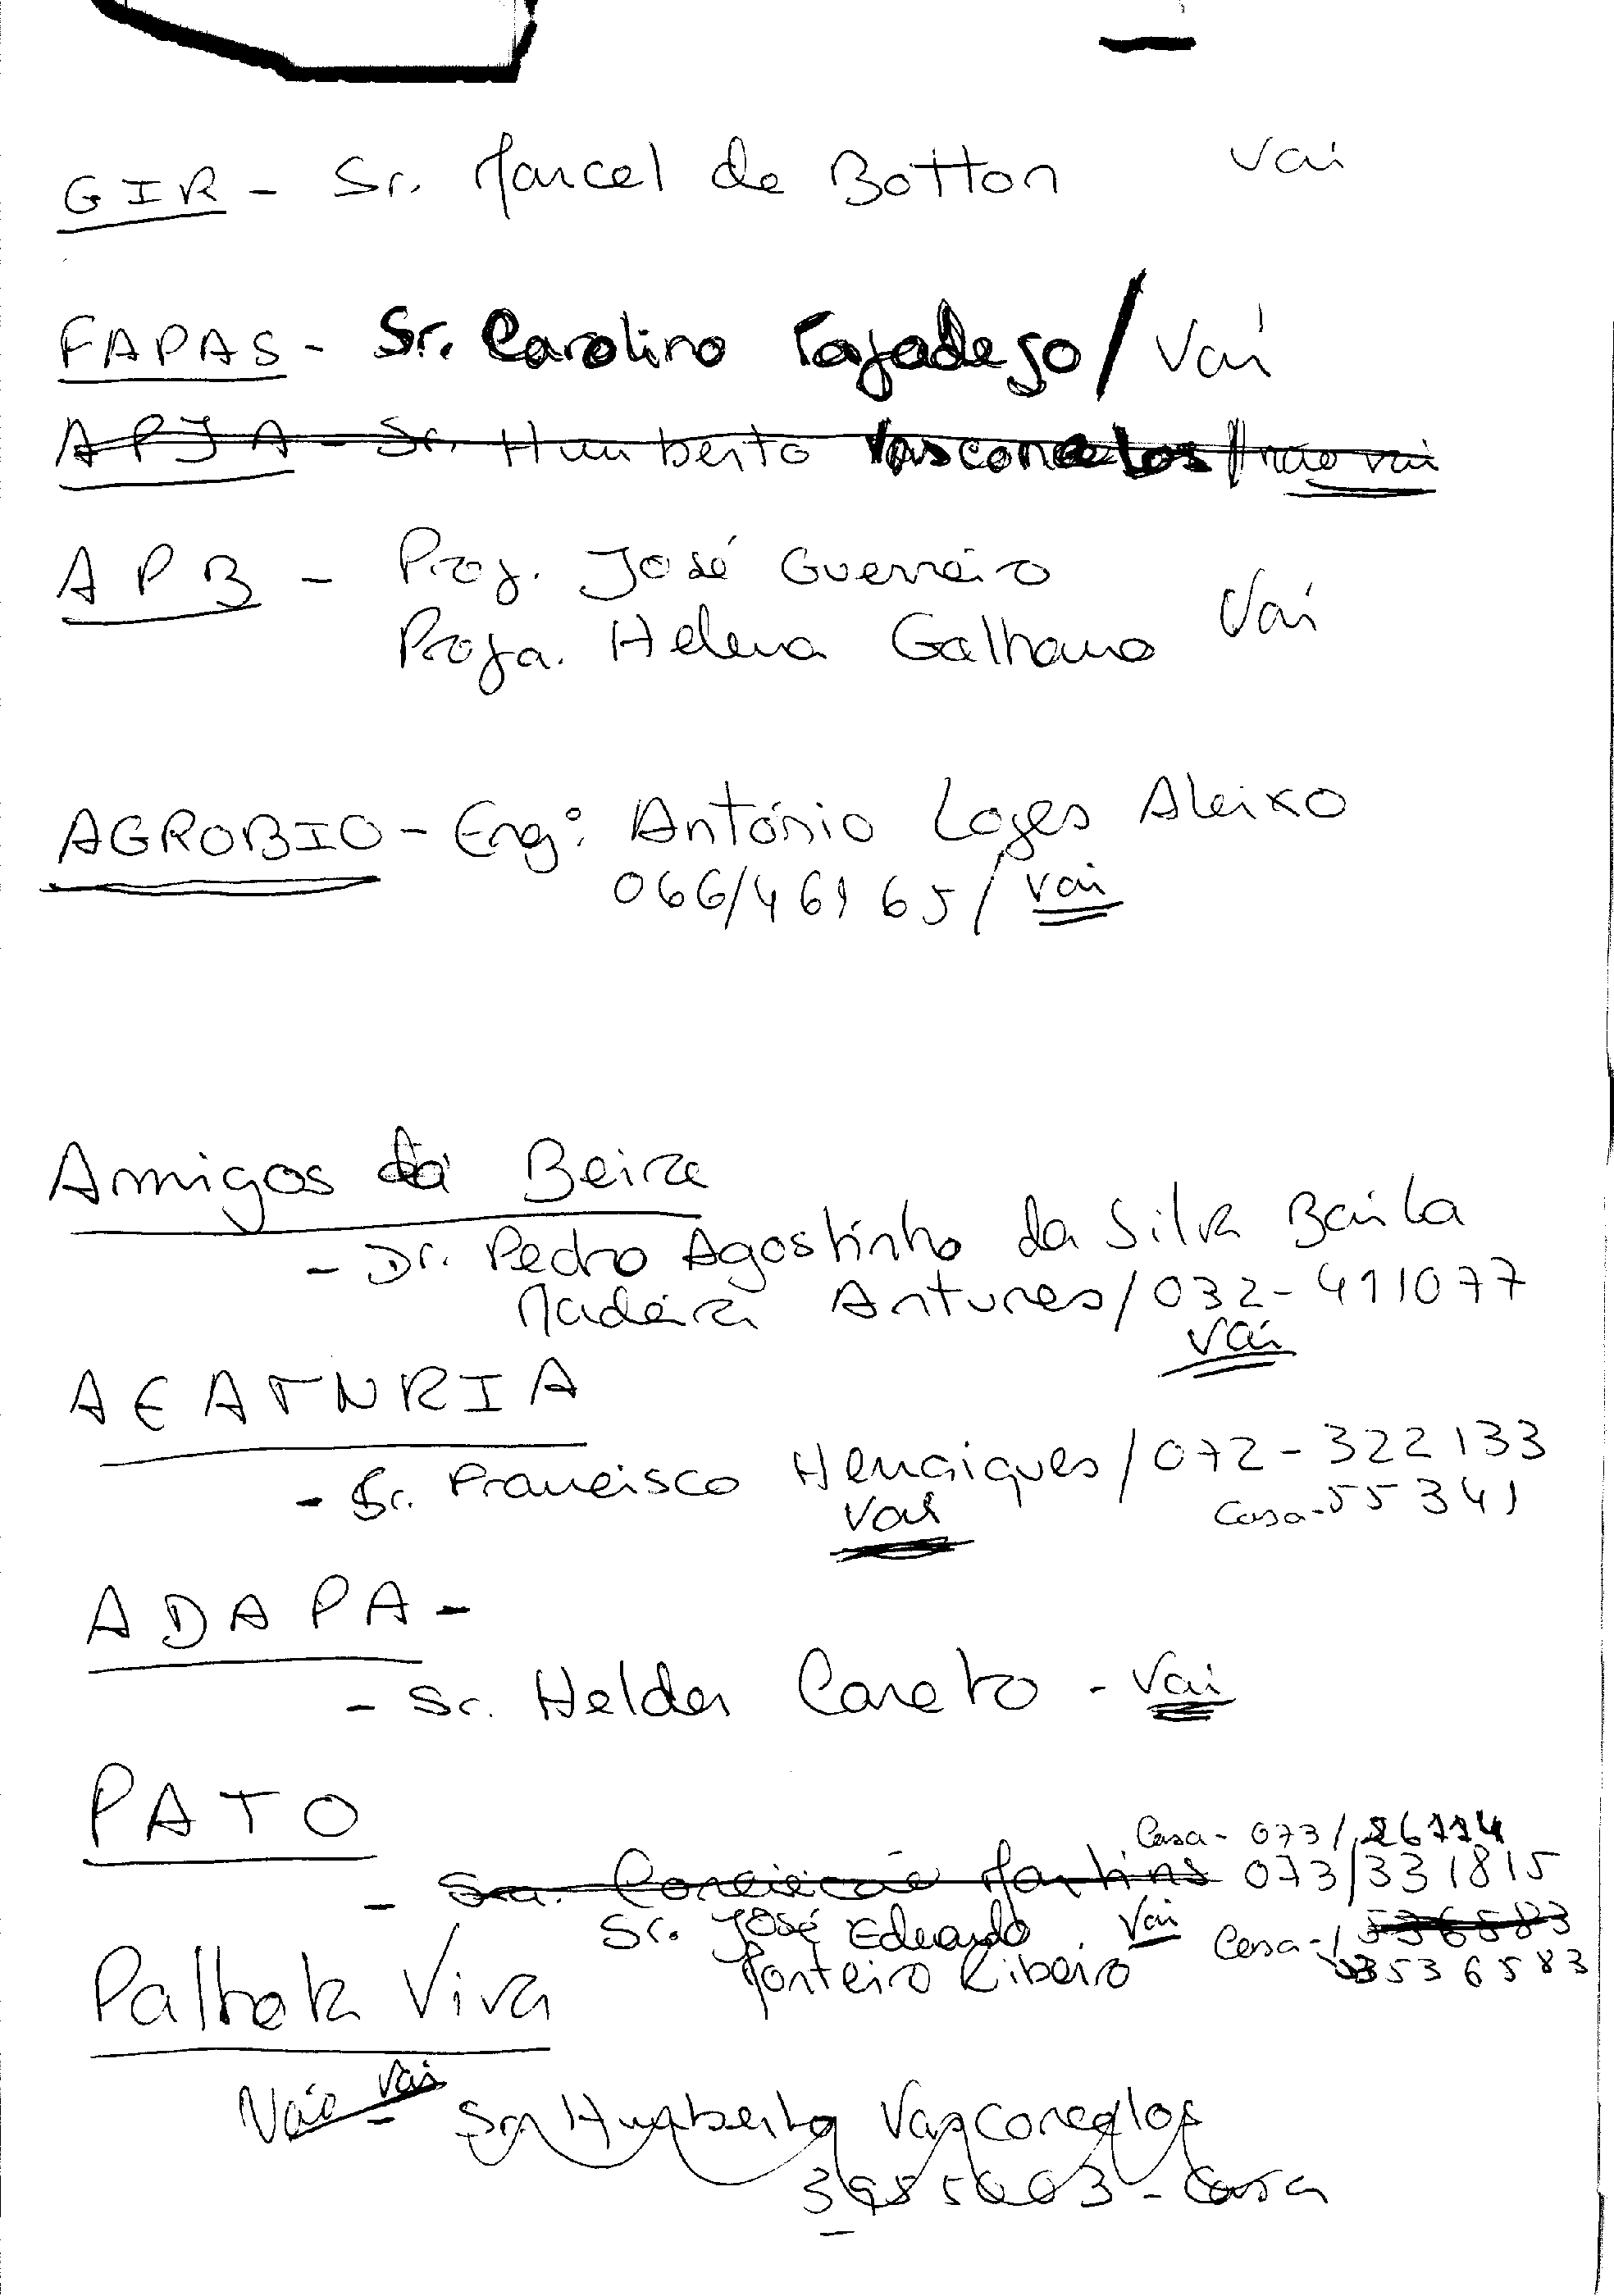 GIR - Sr. Marcel de Botton vai
FAPAS - Sr. Carolino Tapadejo / Vai
APJA - Sr. Humberto Vasconcelos / não vai
APB - Prof. José Guerreiro
Profa. Helena Galhano Vai
AGROBIO - Engº: António Lopes Aleixo
066/46965 / vai
Amigos da Beira
- Dr. Pedro Agostinho da Silva Baila
Madeira Antunes / 032-411077
vai
AEATNRIA
- Sr. Francisco Henriques / 072-322133
vai casa-55341
ADAPA -
- Sr. Helder Careto - Vai
PATO
Casa - 073/
- Sra. Conceição Martins 073/331815
Sr. José Eduardo vai Casa - 536583
Monteiro Ribeiro 536583
Palhota Viva
Não vai - Sr. Humberto Vasconcelos
3985603 - Casa